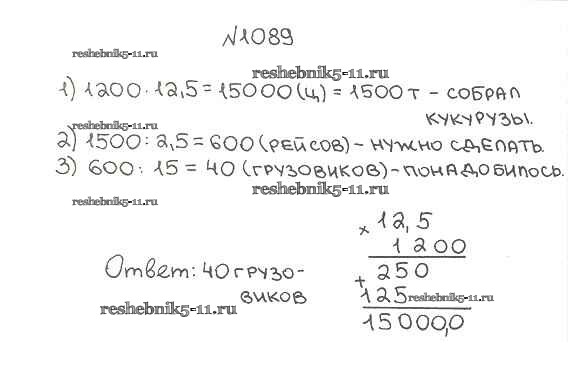 №1089
reshebnik5-11.ru
reshebnik5-11.ru
1) 1200 · 12,5 = 15000 (ц) = 1500 т – СОБРАЛ
КУКУРУЗЫ.
reshebnik5-11.ru
2) 1500 : 2,5 = 600 (РЕЙСОВ) – НУЖНО СДЕЛАТЬ.
3) 600 : 15 = 40 (ГРУЗОВИКОВ) – ПОНАДОБИЛОСЬ.
reshebnik5-11.ru
reshebnik5-11.ru
Ответ: 40 ГРУЗО-
ВИКОВ
reshebnik5-11.ru
× 12,5
1 200
+ 250
125
reshebnik5-11.ru
15000,0